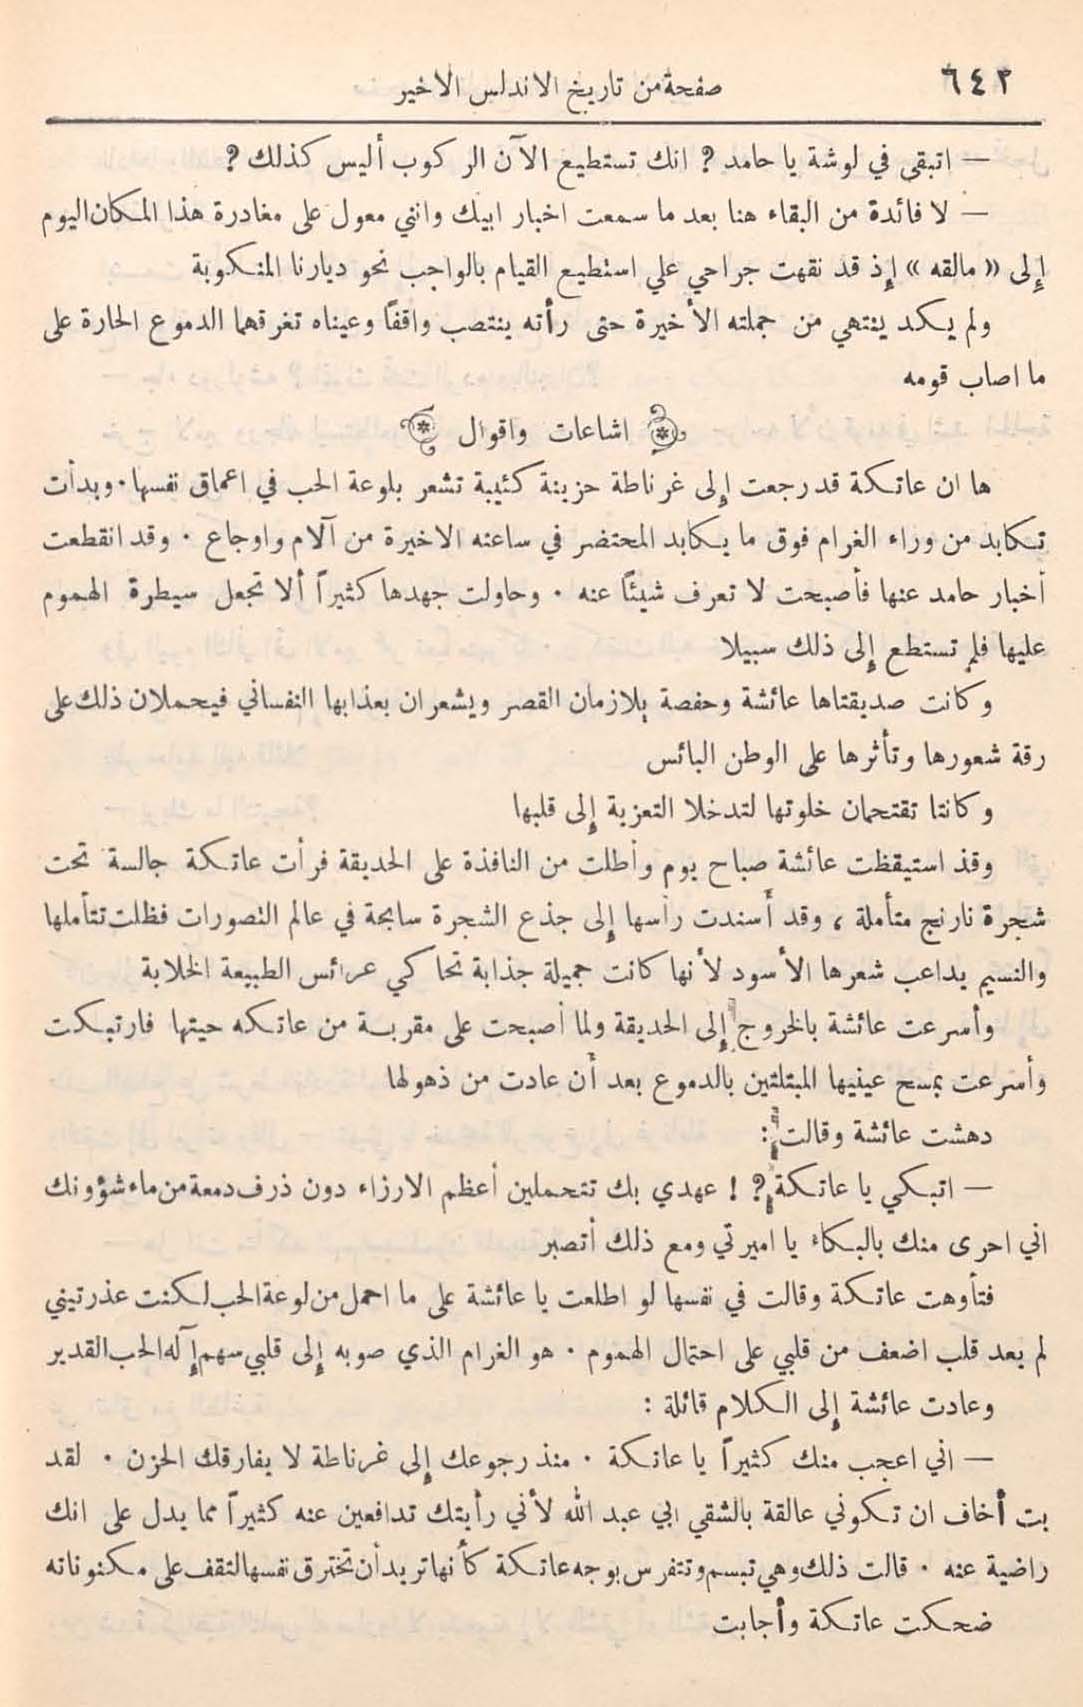 ٦٤٢
صفحة من تاريخ الاندلس الاخير
— اتبقى في لوشة يا حامد ? انك تستطيع الآن الركوب أليس كذلك ?
— لا فائدة من البقاء هنا بعد ما سمعت اخبار ابيك وانني معول على مغادرة هذا المكان اليوم
إلى « مالقه » إذ قد نقهت جراحي علي استطيع القيام بالواجب نحو ديارنا المنكوبة
ولم يكد ينتهي من جملته الأخيرة حتى رأته ينتصب واقفاً وعيناه تغرقهما الدموع الحارة على
ما اصاب قومه
اشاعات واقوال
ها ان عاتكة قد رجعت إلى غرناطة حزينة كئيبة تشعر بلوعة الحب في اعماق نفسها . وبدأت
تكابد من وراء الغرام فوق ما يكابد المحتضر في ساعته الاخيرة من آلام واوجاع . وقد انقطعت
أخبار حامد عنها فأصبحت لا تعرف شيئاً عنه . وحاولت جهدها كثيراً ألا تجعل سيطرة الهموم
عليها فلم تستطع إلى ذلك سبيلا
وكانت صديقتاها عائشة وحفصة يلازمان القصر ويشعران بعذابها النفساني فيحملان ذلك على
رقة شعورها وتأثرها على الوطن البائس
وكانتا تقتحمان خلوتها لتدخلا التعزية إلى قلبها
وقد استيقظت عائشة صباح يوم وأطلت من النافذة على الحديقة فرأت عاتكة جالسة تحت
شجرة نارنج متأملة ، وقد أسندت رأسها إلى جذع الشجرة سابحة في عالم التصورات فظلت تتأملها
والنسيم يداعب شعرها الأسود لأنها كانت جميلة جذابة تحاكي عرائس الطبيعة الخلابة
وأسرعت عائشة بالخروج إلى الحديقة ولما أصبحت على مقربة من عاتكه حيتها فارتبكت
وأسرعت بمسح عينيها المبتلتين بالدموع بعد أن عادت من ذهولها
دهشت عائشة وقالت :
— اتبكي يا عاتكة ? ! عهدي بك تتحملين أعظم الارزاء دون ذرف دمعة من ماء شؤونك
اني احرى منك بالبكاء يا اميرتي ومع ذلك أتصبر
فتأوهت عاتكة وقالت في نفسها لو اطلعت يا عائشة على ما احمل من لوعة الحب لكنت عذرتيني
لم يعد قلب اضعف من قلبي على احتمال الهموم . هو الغرام الذي صوبه إلى قلبي سهم إآله الحب القدير
وعادت عائشة إلى الكلام قائلة :
— اني اعجب منك كثيراً يا عاتكة . منذ رجوعك إلى غرناطة لا يفارقك الحزن . لقد
بت أخاف ان تكوني عالقة بالشقي ابي عبد الله لأني رأيتك تدافعين عنه كثيراً مما يدل على انك
راضية عنه . قالت ذلك وهي تبسم وتتفرس بوجه عاتكة كأنها تريد أن تخترق نفسها لتقف على مكنوناته
ضحكت عاتكة وأجابت